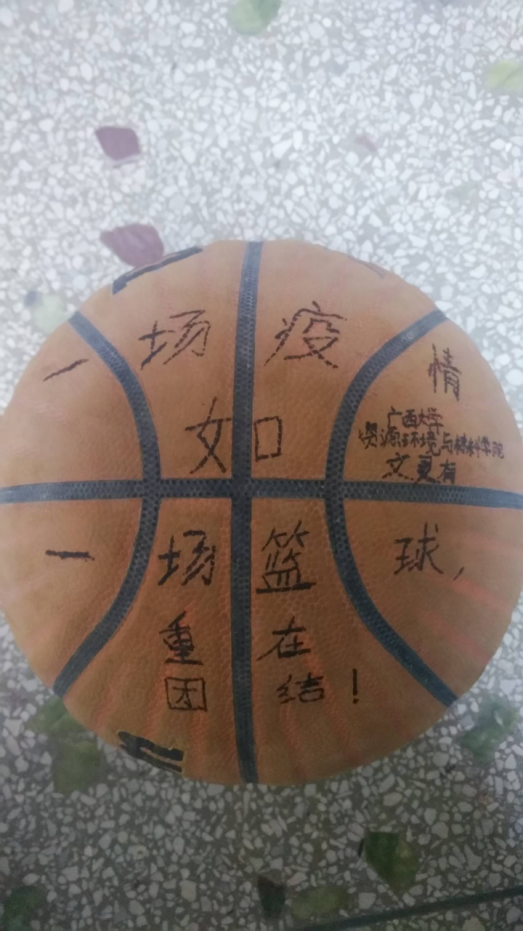 一场疫情
广西大学
资源环境与材料学院
文更有
如
一场篮球,
重在
团结!